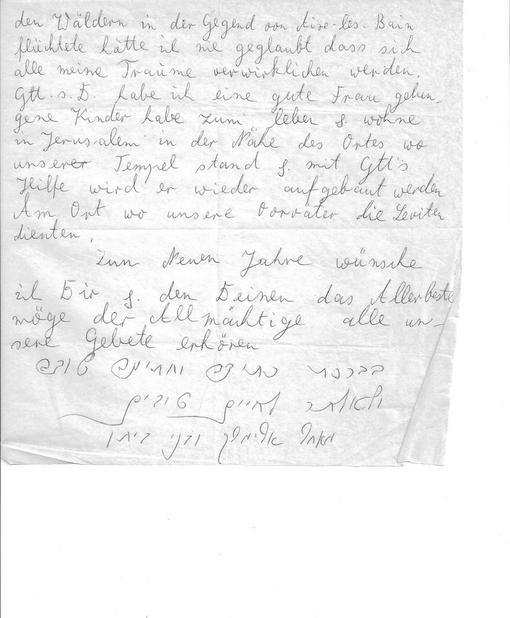 den Wäldern in der Gegend von Aixe-les-Bain
flüchtete hätte ich nie geglaubt dass sich
alle meine Träume verwirklichen werden.
Gtt. s. D. habe ich eine gute Frau gelun-
gene Kinder habe zum leben & wohne
in Jerusalem in der Nähe des Ortes wo
unserer Tempel stand &. mit Gtt's
Hilfe wird er wieder aufgebaut werden
Am Ort wo unsere Vorväter die Leviten
dienten.
Zum Neuen Jahre wünsche
ich Dir &. den Deinen das Allerbeste
möge der Allmächtige alle un-
sere Gebete erhören
בברכת כתיבה וחתימה טובה
ולאלתר לחיים טובים
ובני ביתו